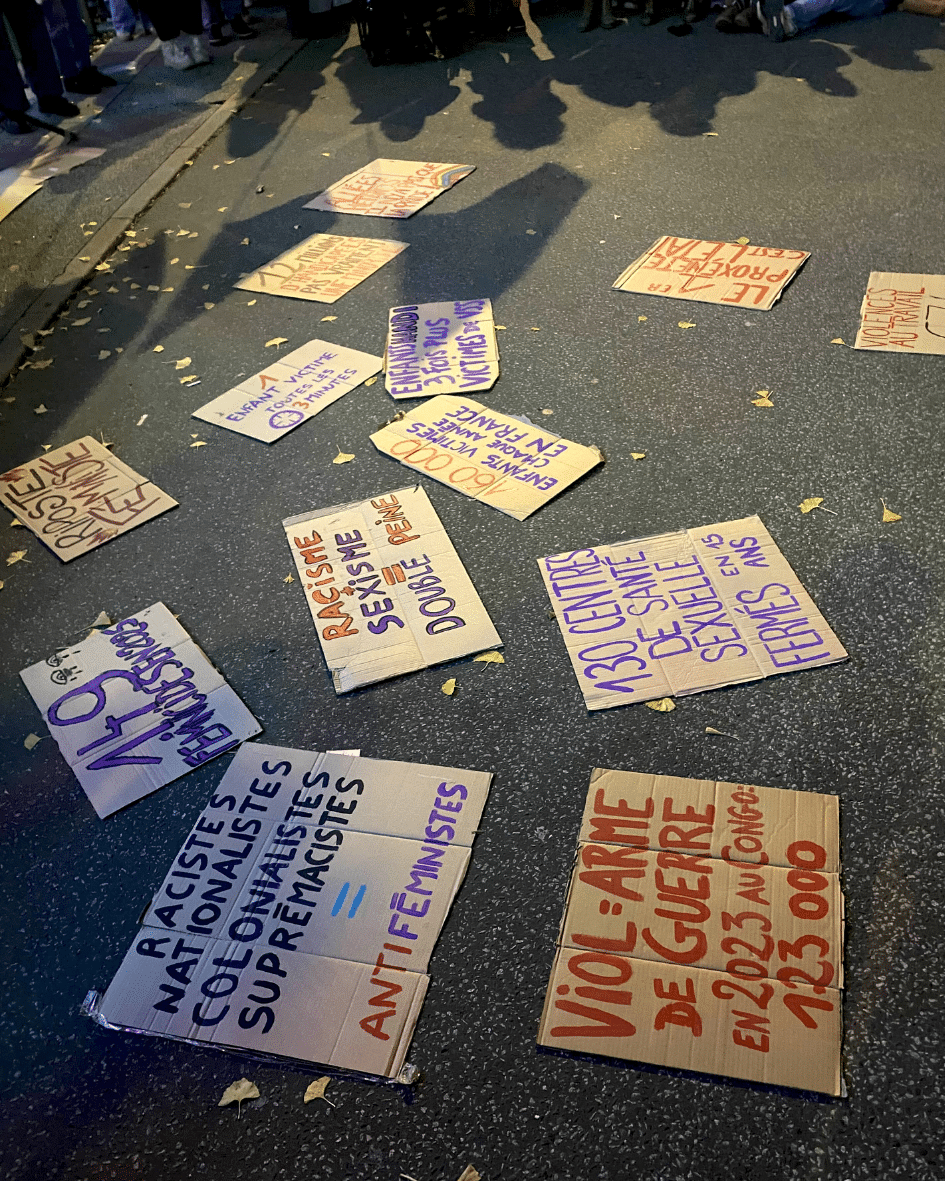 ALLIÉE
12
1
ENFANT VICTIME
TOUTES LES
3 MINUTES
ENFANTS HANDI
3 FOIS PLUS
VICTIMES DE VSS
LE 1ER
PROXÉNÈTE
C'EST L'ETAT
VIOLENCES
AU TRAVAIL
160 000
ENFANTS VICTIMES
CHAQUE ANNÉE
EN FRANCE
RIPOSTE
FEMINISTE
RACISME
+
SEXISME
=
DOUBLE PEINE
130 CENTRES
DE SANTÉ
SEXUELLE
FERMÉS EN 15 ANS
149
FÉMINICIDES EN 2025
RACISTES
NATIONALISTES
COLONIALISTES
SUPRÉMACISTES
=
ANTIFÉMINISTES
VIOL = ARME
DE GUERRE
EN 2023 AU CONGO:
123 000